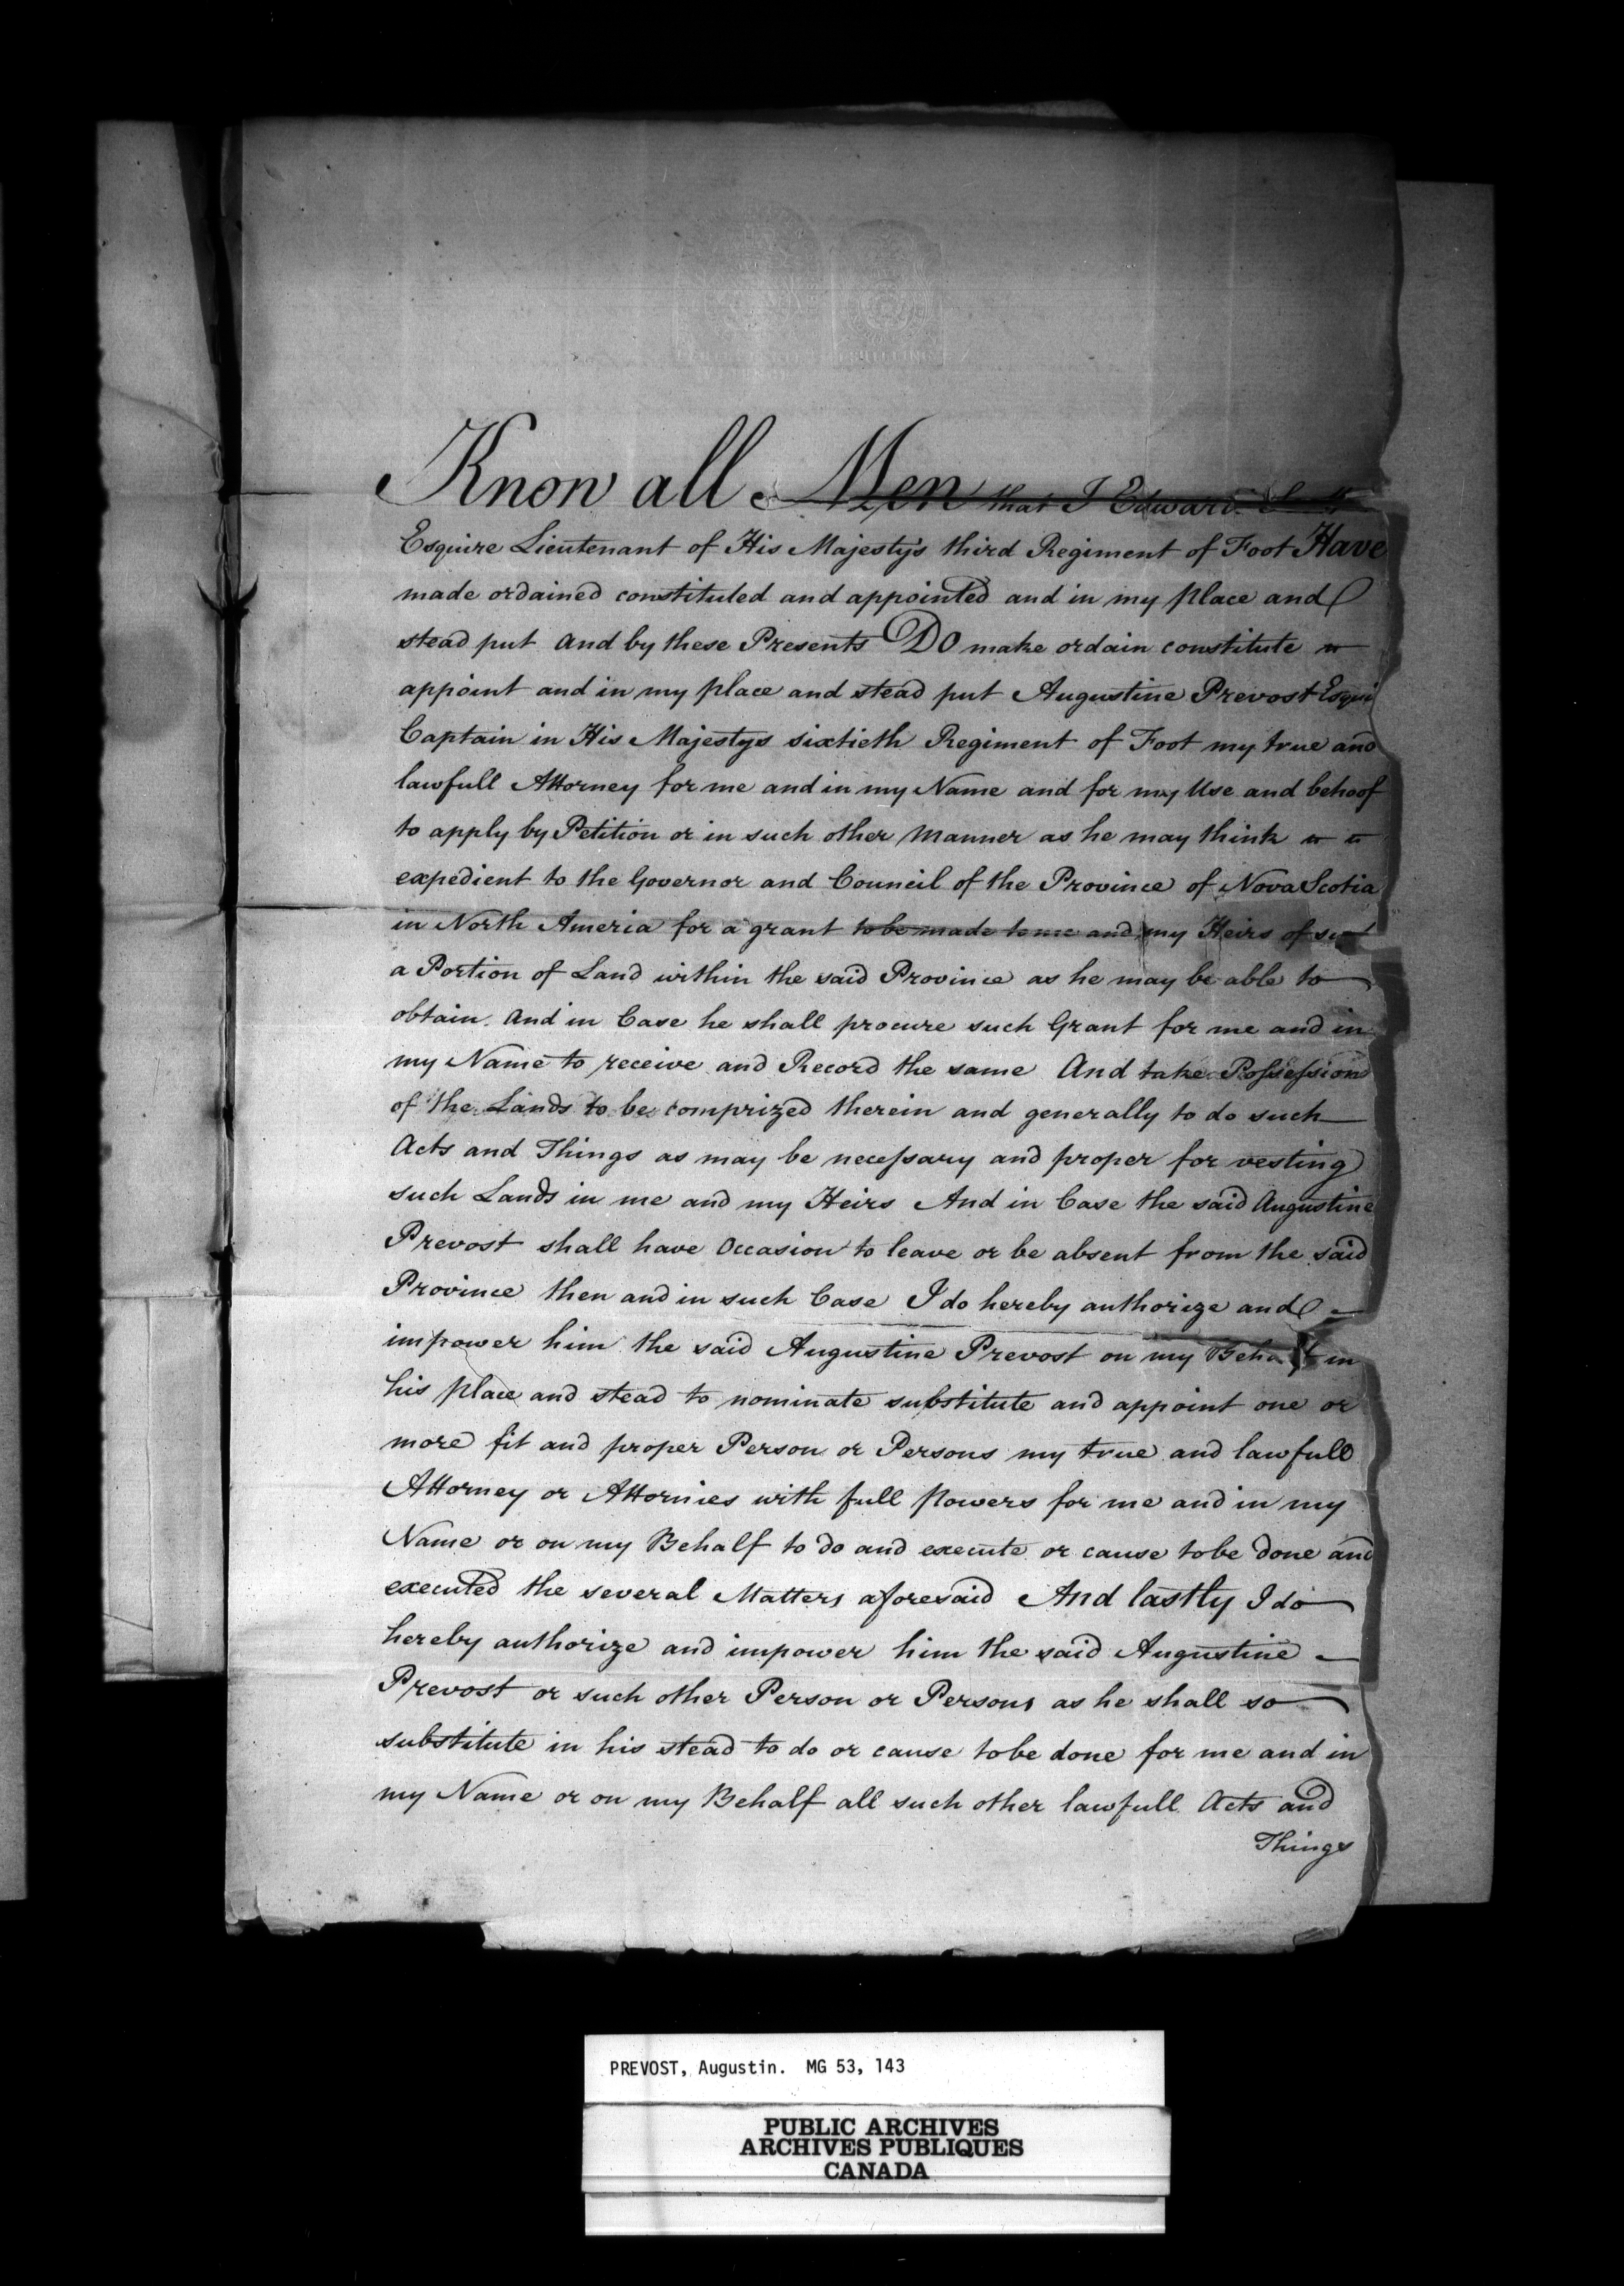 Know all Men that I Edward
Esquire Lieutenant of His Majesty's third Regiment of Foot Have
made ordained constituted and appointed and in my place and
stead put and by these Presents Do make ordain constitute
appoint and in my place and stead put Augustine Prevost Esqui
Captain in His Majestys sixtieth Regiment of Foot my true and
lawfull Attorney for me and in my Name and for my Use and behoof
to apply by Petition or in such other Manner as he may think
expedient to the Governor and Council of the Province of Nova Scotia
in North Ameria for a grant to be made to me and my Heirs of such
a Portion of Land within the said Province as he may be able to
obtain. And in Case he shall procure such Grant for me and in
my Name to receive and Record the same And take Possession
of the Lands to be comprized therein and generally to do such
Acts and Things as may be necessary and proper for vesting
such Lands in me and my Heirs And in Case the said Augustine
Prevost shall have Occasion to leave or be absent from the said
Province then and in such Case I do hereby authorize and
impower him the said Augustine Prevost on my Behalf in
his place and stead to nominate substitute and appoint one or
more fit and proper Person or Persons my true and lawfull
Attorney or Attornies with full powers for me and in my
Name or on my Behalf to do and execute or cause to be done and
executed the several Matters aforesaid And lastly I do
hereby authorize and impower him the said Augustine
Prevost or such other Person or Persons as he shall so
substitute in his stead to do or cause to be done for me and in
my Name or on my Behalf all such other lawfull Acts and
Things
PREVOST, Augustin. MG 53, 143
PUBLIC ARCHIVES
ARCHIVES PUBLIQUES
CANADA